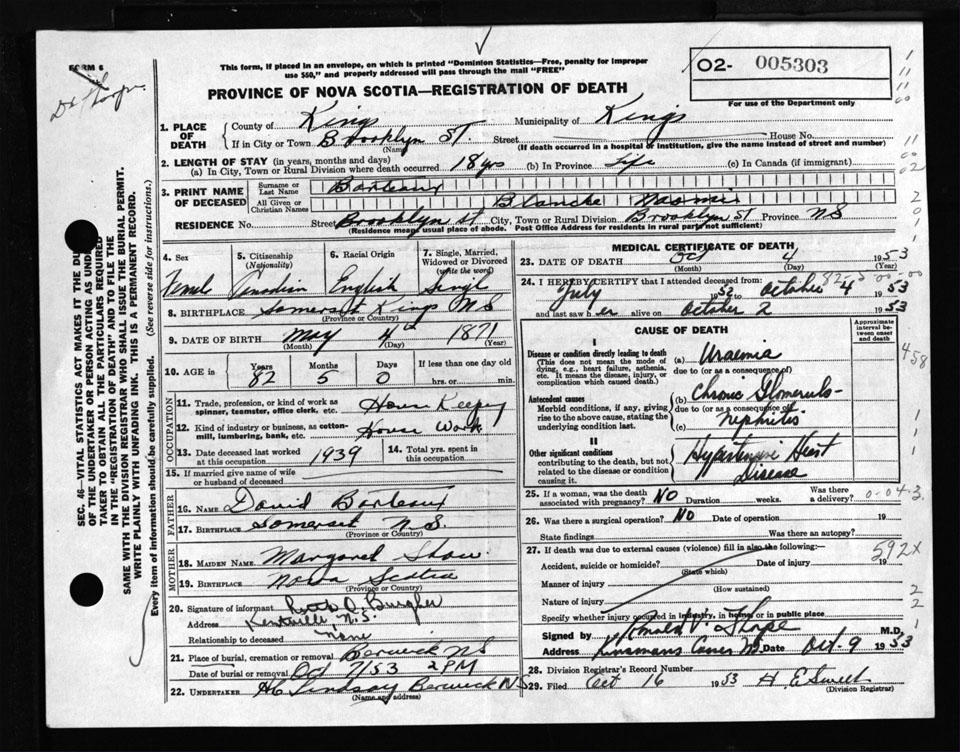 FORM 6
Dr Thorpe
This form, if placed in an envelope, on which is printed "Dominion Statistics—Free, penalty for improper
use $50," and properly addressed will pass through the mail "FREE"
O2- 005303
For use of the Department only
PROVINCE OF NOVA SCOTIA—REGISTRATION OF DEATH
1. PLACE OF DEATH
County of Kings Municipality of Kings
If in City or Town Brooklyn St Street House No.
(Name) (If death occurred in a hospital or institution, give the name instead of street and number)
2. LENGTH OF STAY (in years, months and days)
(a) In City, Town or Rural Division where death occurred 18 yrs (b) In Province Life (c) In Canada (if immigrant)
3. PRINT NAME OF DECEASED
Surname or Last Name Barteaux
All Given or Christian Names Blanche Naomi
RESIDENCE No. Street Brooklyn St City, Town or Rural Division Brooklyn St Province NS
(Residence means usual place of abode. Post Office Address for residents in rural parts not sufficient)
4. Sex 5. Citizenship (Nationality) 6. Racial Origin 7. Single, Married, Widowed or Divorced (write the word)
Female Canadian English Single
8. BIRTHPLACE Somerset Kings NS
(Province or Country)
9. DATE OF BIRTH May 4 1871
(Month) (Day) (Year)
10. AGE in Years Months Days If less than one day old
82 5 0 hrs. or min.
OCCUPATION
11. Trade, profession, or kind of work as
spinner, teamster, office clerk, etc. House Keeping
12. Kind of industry or business, as cotton-
mill, lumbering, bank, etc. House Work
13. Date deceased last worked at this occupation 1939 14. Total yrs. spent in this occupation
15. If married give name of wife
or husband of deceased
FATHER
16. NAME David Barteaux
17. BIRTHPLACE Somerset N.S.
(Province or Country)
MOTHER
18. MAIDEN NAME Margaret Shaw
19. BIRTHPLACE Nova Scotia
(Province or Country)
20. Signature of informant
Address Kentville N.S.
Relationship to deceased None
21. Place of burial, cremation or removal Berwick NS
Date of burial or removal Oct 7/53 2 PM
22. UNDERTAKER Lindsay Berwick NS
(Name and address)
MEDICAL CERTIFICATE OF DEATH
23. DATE OF DEATH Oct 4 1953
(Month) (Day) (Year)
24. I HEREBY CERTIFY that I attended deceased from
July 1953 to October 4 1953
and last saw her alive on October 2 1953
CAUSE OF DEATH
Approximate interval between onset and death
I
Disease or condition directly leading to death (a) Uraemia
(This does not mean the mode of dying, e.g., heart failure, asthenia, etc. It means the disease, injury, or complication which caused death.)
due to (or as a consequence of)
Antecedent causes
Morbid conditions, if any, giving rise to the above cause, stating the underlying condition last.
(b) Chronic Glomerulo-
due to (or as a consequence of)
(c) Nephritis
II
Other significant conditions
contributing to the death, but not related to the disease or condition causing it.
Hypertensive Heart
Disease
458
25. If a woman, was the death associated with pregnancy? NO Duration weeks. Was there a delivery?
0-04-3
26. Was there a surgical operation? NO Date of operation 19
State findings Was there an autopsy?
27. If death was due to external causes (violence) fill in also the following:—
592X
Accident, suicide or homicide? Date of injury 19
(State which)
Manner of injury
(How sustained)
Nature of injury
Specify whether injury occurred in industry, in home or in public place
Signed by Ronald V. Thorpe M.D.
Address Date Oct-9 1953
28. Division Registrar's Record Number
29. Filed Oct 16 1953 H E Sweet
(Division Registrar)
SEC. 46—VITAL STATISTICS ACT MAKES IT THE DU
OF THE UNDERTAKER OR PERSON ACTING AS UNDER
TAKER TO OBTAIN ALL THE PARTICULARS REQUIRED
IN THE "REGISTRATION OF DEATH" AND TO FILE THE
SAME WITH THE DIVISION REGISTRAR WHO SHALL ISSUE THE BURIAL PERMIT.
WRITE PLAINLY WITH UNFADING INK. THIS IS A PERMANENT RECORD.
Every item of information should be carefully supplied. (See reverse side for instructions.)